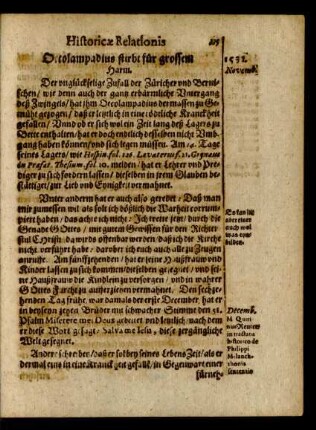 Historicæ Relationis
Oecolampadius stirbt für grossem
Harm.
1531.
Novemb.
Der vnglückselige Zufall der Züricher vnd Berni-
schen/ wie denn auch der gantz erbärmliche Vntergang
deß Zwingels/ hat ihm Oecolampadius dermassen zu Ge-
mühe gezogen/ daß er letzlich in eine tödliche Kranckheit
gefallen/ Vnnd ob er sich wol ein Zeit lang deß Lagers zu
Bette enthalten/ hat er doch endlich desselben nicht Vmb-
gang haben können/ vnd sich legen müssen. Am 14. Tage
seines Lagers/ wie Hospin. fol. 126. Lavaterus, Grynæus
in Præfat. Thesium, fol. 10. melden/ hat er Lehrer vnd Pre-
diger zu sich fordern lassen/ dieselben in jrem Glauben be-
stättiget/ zur Lieb vnd Eynigkeit vermahnet.
Vnter anderm hat er auch also geredet/ Daß man
mir zumessen wil als solt ich bößlich der Warheit corrum-
piert haben/ das achte ich nicht/ Ich rewte jetzt/ durch die
Genade Gottes/ mit gutem Gewissen für den Richter-
stul Christi/ da wird offenbar werden/ daß ich die Kirche
nicht verführt habe/ darüber ich euch auch alle zu Zeugen
anruffe. Am fünffzehenden/ hat er seine Haußfraw vnd
Kinder lassen zu sich kommen/ dieselben gesegnet/ vnd sei-
ne Haußfraw die Kindlein zu versorgen/ vnd in wahrer
Gottes Furcht zu aufferziehen vermahnet. Den sechtze-
henden Tag frühe/ war damals der erste December, hat er
in beyseyn zehen Brüder mit schwacher Stimme den 51.
Psalm Miserere mei Deus gebetet vnd letzlich/ nach dem
er diese Wort gesagt/ Salva me Iesu, diese vergängliche
Welt gesegnet.
Decemb.
Ander schreiben/ daß er sol bey seines Lebens Zeit/ als er
der mal eins in eine Kranckheit gefallē/ in Gegenwart einer
fürneh-